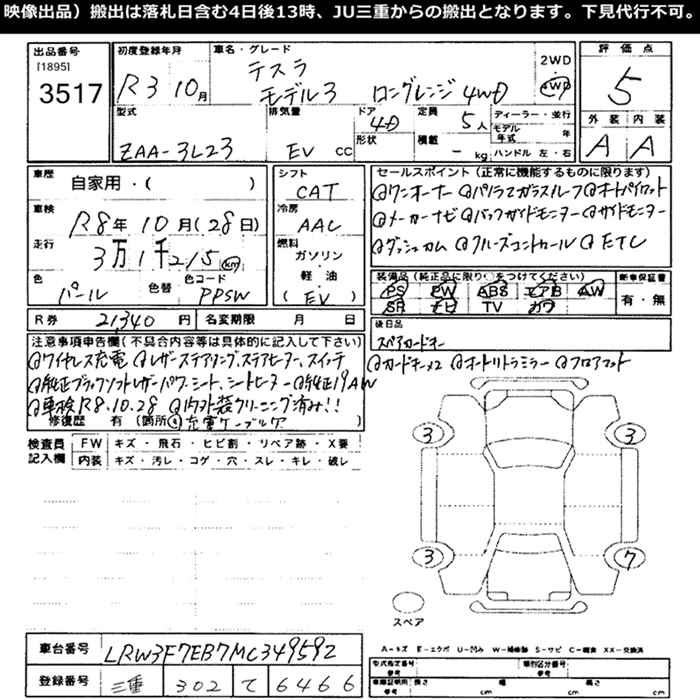 映像出品）搬出は落札日含む4日後13時、JU三重からの搬出となります。下見代行不可。
出品番号 [1895] 3517
初度登録年月 R3 10月
車名・グレード テスラ モデル3 ロングレンジ 4WD
2WD 4WD
評価点 5
外装 内装
A A
型式 ZAA-3L23
排気量 EV cc
ドア 4D
形状
定員 5人
積載 - kg
ディーラー・並行
モデル年式 年
ハンドル 左・右
車歴 自家用・( )
車検 R8年10月(28日)
走行 3万1千215km
色 パール 色替 色コード PPSW
シフト CAT
冷房 AAC
燃料 ガソリン・軽油 (EV)
セールスポイント（正常に機能するものに限ります）
@ワンオーナー @パノラマガラスルーフ @オートパイロット
@メーカーナビ @バックガイドモニター @サイドモニター
@ダッシュカム @クルーズコントロール @ETC
装備品（純正品に限り○をつけてください）
PS PW ABS エアB AW
SR ナビ TV カワ
新車保証書 有・無
R券 21,340円 名変期限 月 日
後日品 スペアカードキー
注意事項申告欄（不具合内容等は具体的に記入して下さい）
@ワイヤレス充電 @レザーステアリング、ステアヒーター、スイッチ @カードキー×2 @オートリトラミラー @フロアマット
@純正ブラックソフトレザーパワーシート、シートヒーター @純正19AW
@車検R8.10.28 @内外装クリーニング済み!!
修復歴 有 (箇所 @充電ケーブルケ
検査員記入欄
FW キズ・飛石・ヒビ割・リペア跡・X要
内装 キズ・汚レ・コゲ・穴・スレ・キレ・破レ
3 3
3 7
スペア
A－キズ E－エクボ U－凹み W－補修跡 S－サビ C－腐食 XX－交換済
車台番号 LRW3F7EB7MC349592
登録番号 三重 302 て 6466
型式指定番号 参考
類別区分番号 参考
車庫証明用 参考 長さ cm 幅 cm 高さ cm